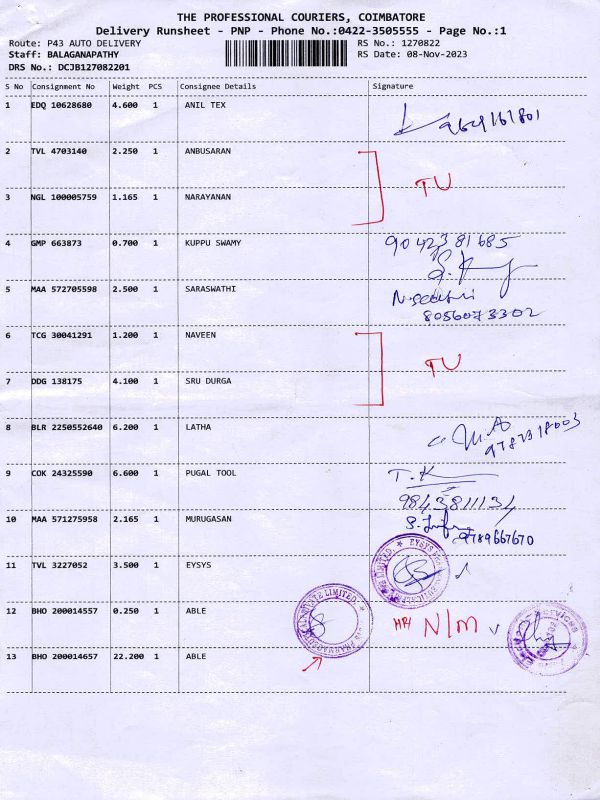 THE PROFESSIONAL COURIERS, COIMBATORE
Delivery Runsheet - PNP - Phone No.:0422-3505555 - Page No.:1
Route: P43 AUTO DELIVERY RS No.: 1270822
Staff: BALAGANAPATHY RS Date: 08-Nov-2023
DRS No.: DCJB127082201
S No Consignment No Weight PCS Consignee Details Signature
1 EDQ 10628680 4.600 1 ANIL TEX
2 TVL 4703140 2.250 1 ANBUSARAN
TU
3 NGL 100005759 1.165 1 NARAYANAN
4 GMP 663873 0.700 1 KUPPU SWAMY 9042381685
5 MAA 572705598 2.500 1 SARASWATHI
8056073302
6 TCG 30041291 1.200 1 NAVEEN
TU
7 DDG 138175 4.100 1 SRU DURGA
8 BLR 2250552640 6.200 1 LATHA
9 COK 24325590 6.600 1 PUGAL TOOL T.K
9843811134
10 MAA 571275958 2.165 1 MURUGASAN
9789667670
11 TVL 3227052 3.500 1 EYSYS
12 BHO 200014557 0.250 1 ABLE N/M
13 BHO 200014657 22.200 1 ABLE